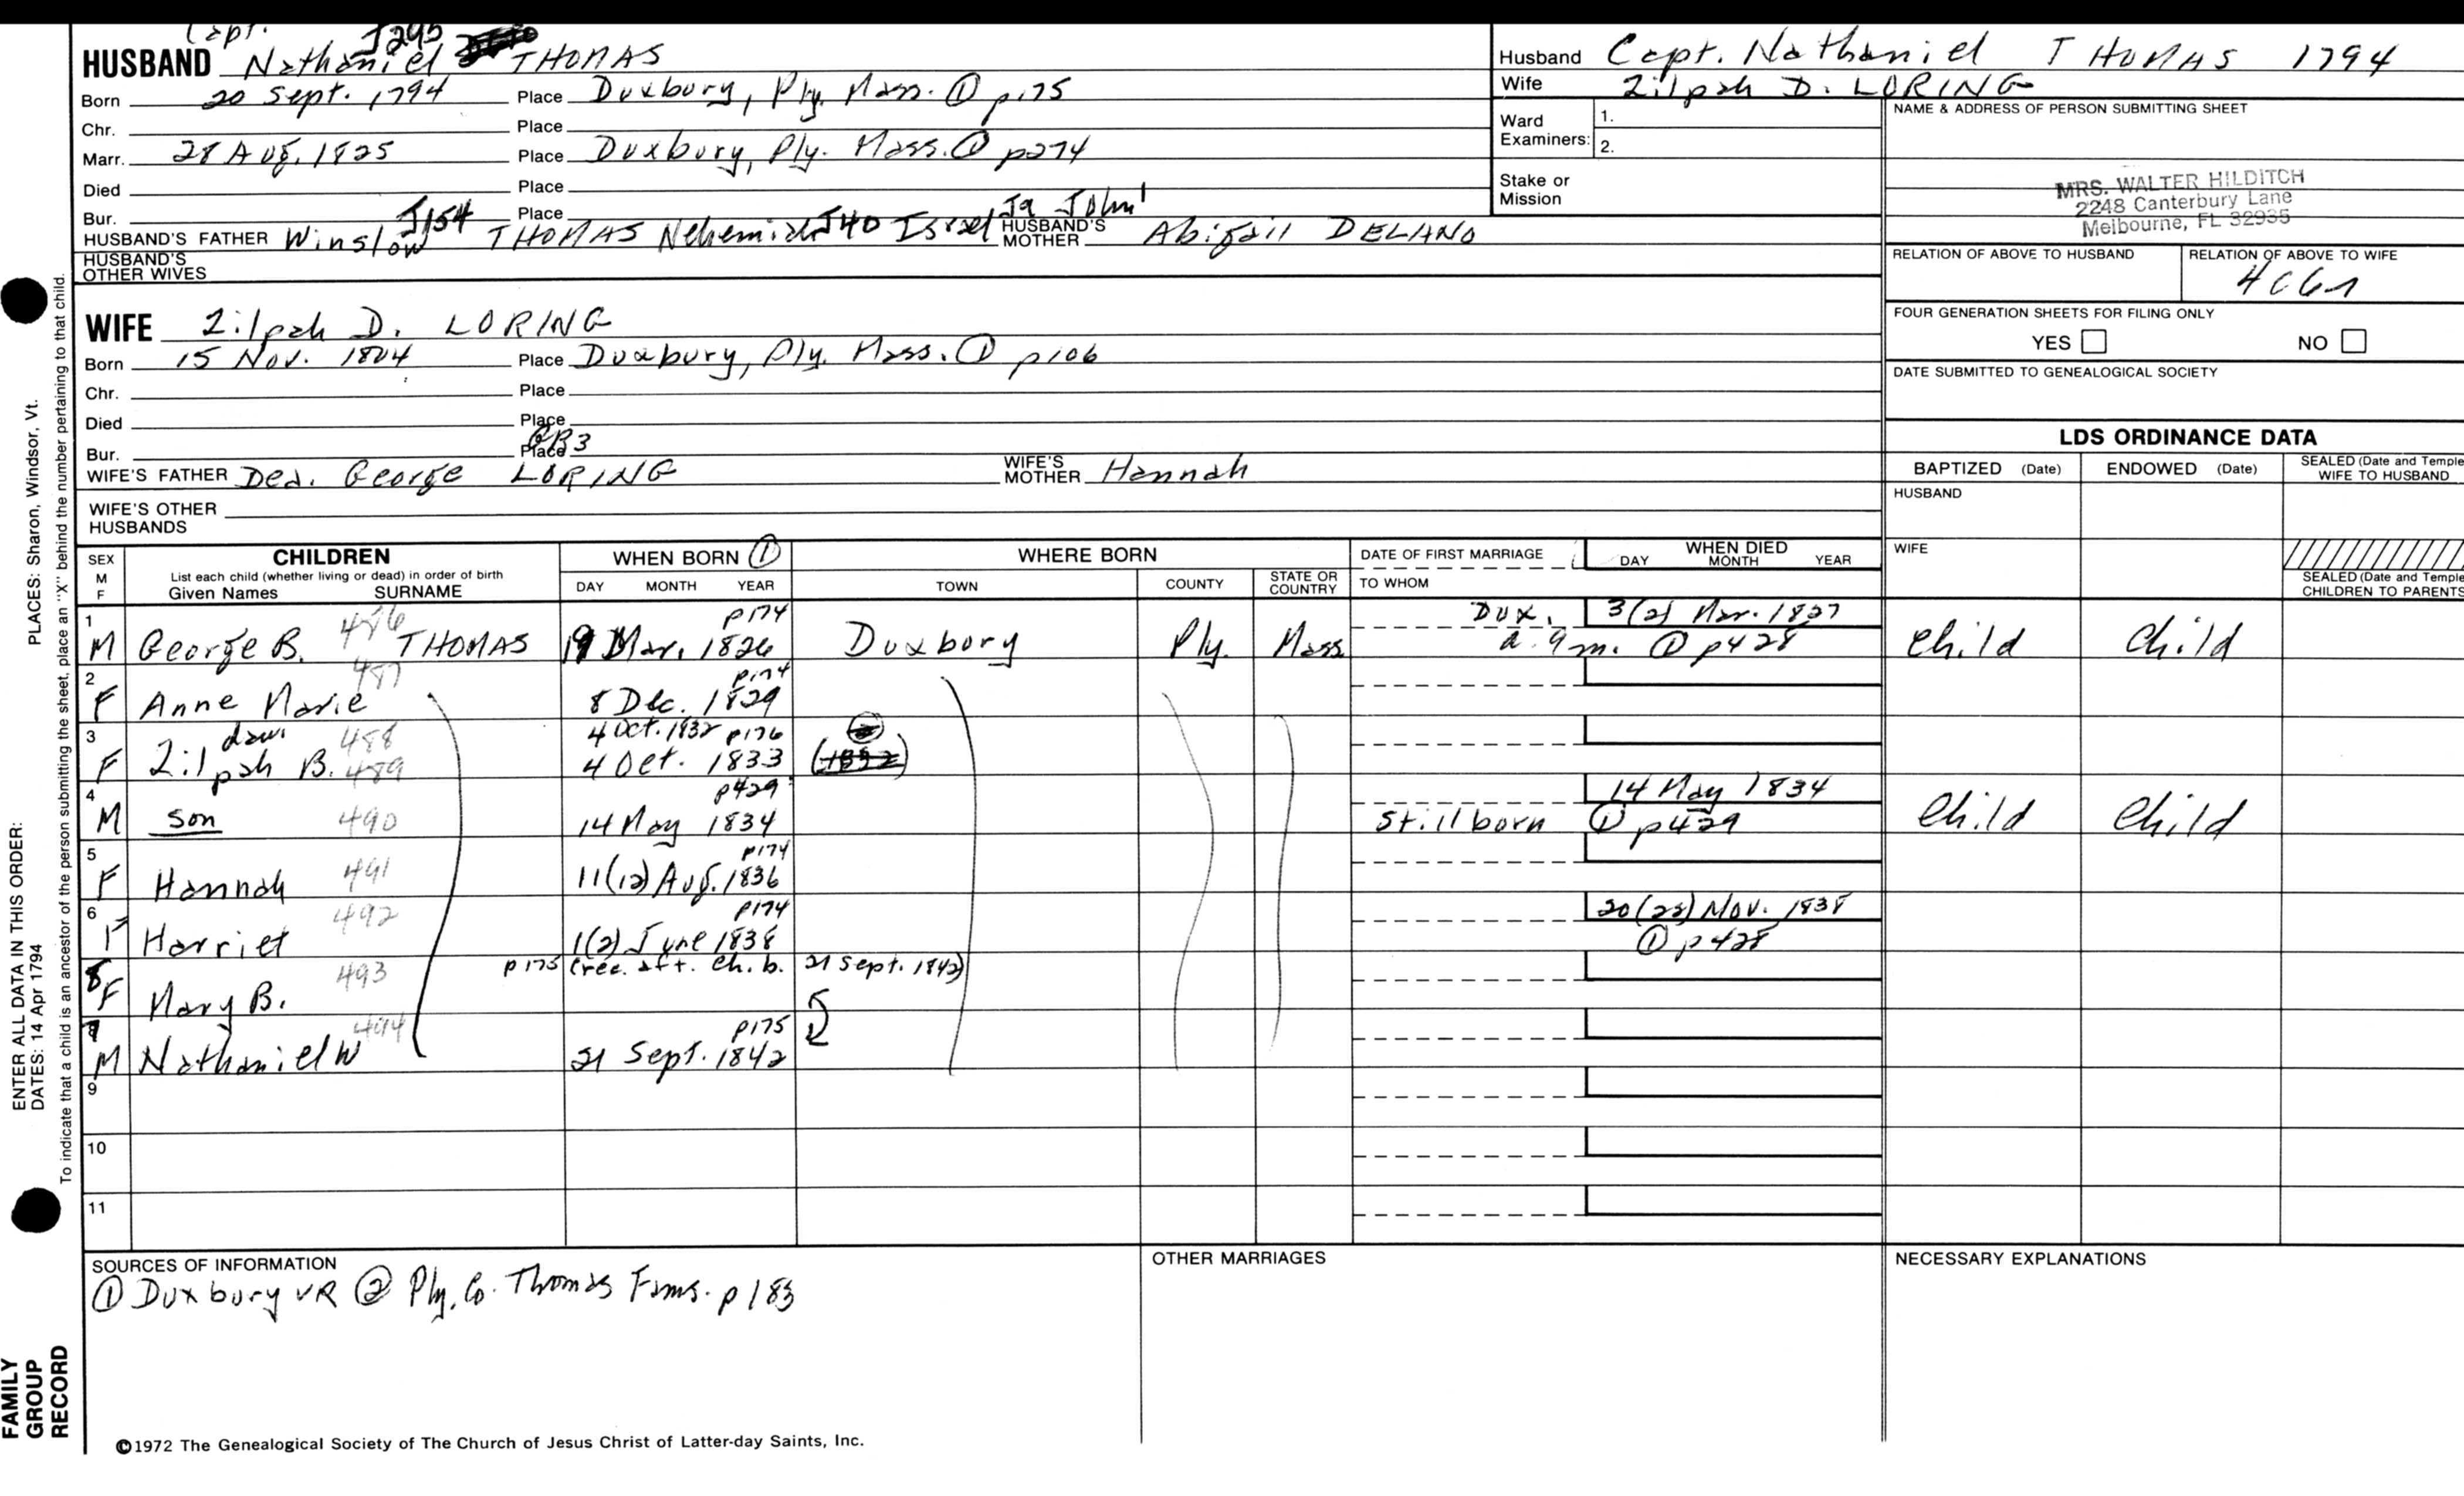 Capt. J295
HUSBAND Nathaniel THOMAS
Born 20 Sept. 1794 Place Duxbury, Ply. Mass. ① p.175
Chr. Place
Marr. 28 Aug. 1825 Place Duxbury, Ply. Mass. ① p274
Died Place
Bur. Place
J154 J9 John¹
HUSBAND'S FATHER Winslow THOMAS Nehemiah J40 Israel HUSBAND'S MOTHER Abigail DELANO
HUSBAND'S OTHER WIVES
WIFE Zilpah D. LORING
Born 15 Nov. 1804 Place Duxbury, Ply. Mass. ① p106
Chr. Place
Died Place
Bur. Place
WIFE'S FATHER Dea. George LORING WIFE'S MOTHER Hannah
WIFE'S OTHER HUSBANDS
Husband Capt. Nathaniel THOMAS 1794
Wife Zilpah D. LORING
Ward Examiners: 1.
2.
Stake or Mission
NAME & ADDRESS OF PERSON SUBMITTING SHEET
MRS. WALTER HILDITCH
2248 Canterbury Lane
Melbourne, FL 32935
RELATION OF ABOVE TO HUSBAND RELATION OF ABOVE TO WIFE
4C6r
FOUR GENERATION SHEETS FOR FILING ONLY
YES NO
DATE SUBMITTED TO GENEALOGICAL SOCIETY
LDS ORDINANCE DATA
BAPTIZED (Date) ENDOWED (Date) SEALED (Date and Temple) WIFE TO HUSBAND
HUSBAND
WIFE
SEALED (Date and Temple) CHILDREN TO PARENTS
SEX M F CHILDREN WHEN BORN ① WHERE BORN DATE OF FIRST MARRIAGE WHEN DIED
List each child (whether living or dead) in order of birth
Given Names SURNAME DAY MONTH YEAR TOWN COUNTY STATE OR COUNTRY TO WHOM DAY MONTH YEAR
1 486 p174 Dux. 3(2) Mar. 1827
M George B. THOMAS 19 Mar. 1826 Duxbury Ply. Mass a. 9m. ① p428 Child Child
2 487 p174
F Anne Marie 8 Dec. 1829
3 dau. 488 4 Oct. 1832 p176
F Zilpah B. 489 4 Oct. 1833 (1832)
4 p429 14 May 1834
M son 490 14 May 1834 Stillborn ① p429 Child Child
5 p174
F Hannah 491 11(12) Aug. 1836
6 492 p174 20(22) Nov. 1838
F Harriet 1(2) June 1838 ① p428
8 493 p175 (rec. aft. ch. b. 21 Sept. 1842)
F Mary B.
7 494 p175
M Nathaniel W 21 Sept. 1842
9
10
11
SOURCES OF INFORMATION
① Duxbury VR ② Ply. Co. Thomas Fams. p183
OTHER MARRIAGES
NECESSARY EXPLANATIONS
©1972 The Genealogical Society of The Church of Jesus Christ of Latter-day Saints, Inc.
PLACES: Sharon, Windsor, Vt.
ENTER ALL DATA IN THIS ORDER:
DATES: 14 Apr 1794
To indicate that a child is an ancestor of the person submitting the sheet, place an "X" behind the number pertaining to that child.
FAMILY
GROUP
RECORD